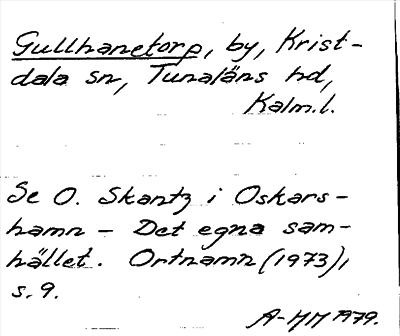 Gullhanetorp, by, Krist-
dala sn, Tunaläns hd,
Kalm.l.
Se O. Skantz i Oskars-
hamn - Det egna sam-
hället. Ortnamn (1973),
s. 9.
A-MM 1979.